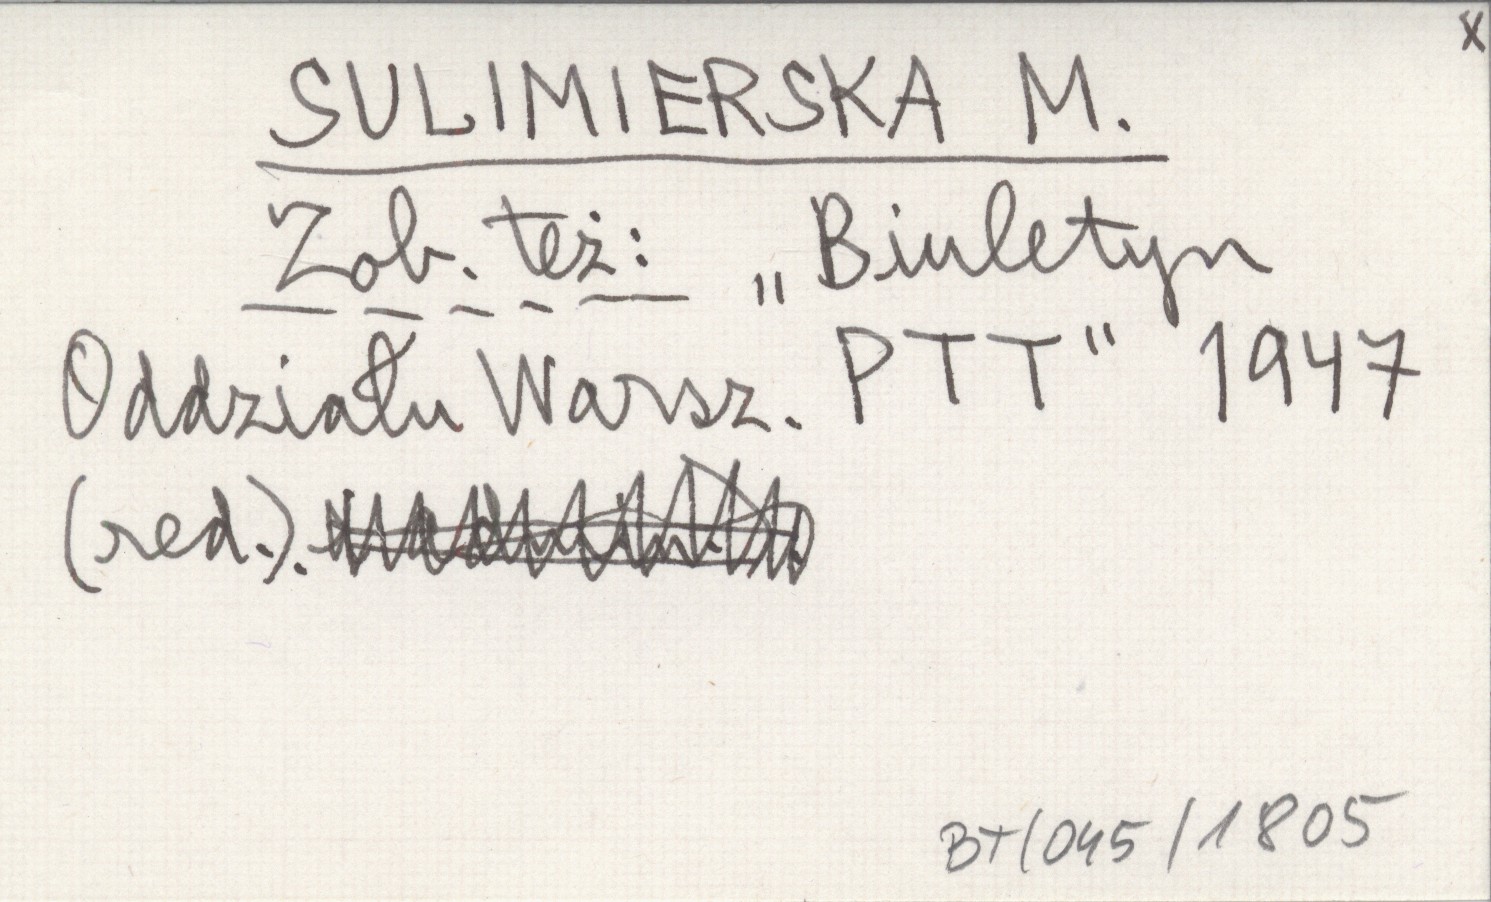 x
SULIMIERSKA M.
Zob. też: „Biuletyn
Oddziału Warsz. PTT" 1947
(red.).
BT/045/1805